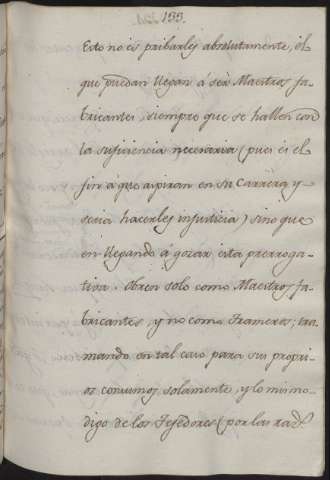 155.
Esto no es pribarles absolutamente, el
que puedan llegar á ser Maestros fa-
bricantes, siempre que se hallen con
la suficiencia necesaria (pues es el
fin á que aspiran en su Carrera y
seria hacerles injusticia) sino que
en llegando á gozar esta prerroga-
tiva, obren solo como Maestros fa-
bricantes, y no como Trameros; tra-
mando en tal caso para sus propri-
os consumos solamente, y lo mismo
digo de los Tejedores (por las